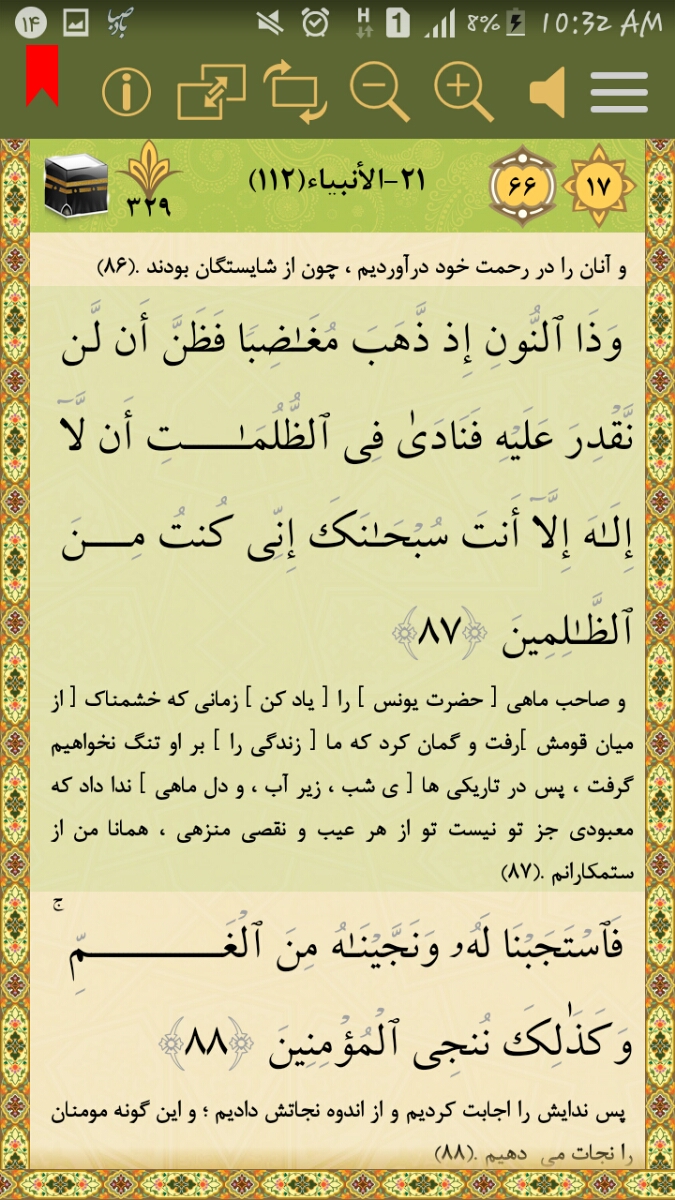 ۱۴ بادصبا H 1 8% 10:32 AM
۳۲۹ ۲۱-الأنبیاء(۱۱۲) ۶۶ ۱۷
و آنان را در رحمت خود درآوردیم ، چون از شایستگان بودند .(۸۶)
وَذَا ٱلنُّونِ إِذ ذَّهَبَ مُغَـٰضِبًا فَظَنَّ أَن لَّن
نَّقْدِرَ عَلَيْهِ فَنَادَىٰ فِى ٱلظُّلُمَـٰـتِ أَن لَّآ
إِلَـٰهَ إِلَّآ أَنتَ سُبْحَـٰنَكَ إِنِّى كُنتُ مِـنَ
ٱلظَّـٰلِمِينَ ﴿۸۷﴾
و صاحب ماهی [ حضرت یونس ] را [ یاد کن ] زمانی که خشمناک [ از
میان قومش ]رفت و گمان کرد که ما [ زندگی را ] بر او تنگ نخواهیم
گرفت ، پس در تاریکی ها [ ی شب ، زیر آب ، و دل ماهی ] ندا داد که
معبودی جز تو نیست تو از هر عیب و نقصی منزهی ، همانا من از
ستمکارانم .(۸۷)
فَٱسْتَجَبْنَا لَهُۥ وَنَجَّيْنَـٰهُ مِنَ ٱلْغَـمِّ ۚ
وَكَذَٰلِكَ نُنجِى ٱلْمُؤْمِنِينَ ﴿۸۸﴾
پس ندایش را اجابت کردیم و از اندوه نجاتش دادیم ؛ و این گونه مومنان
را نجات می دهیم .(۸۸)